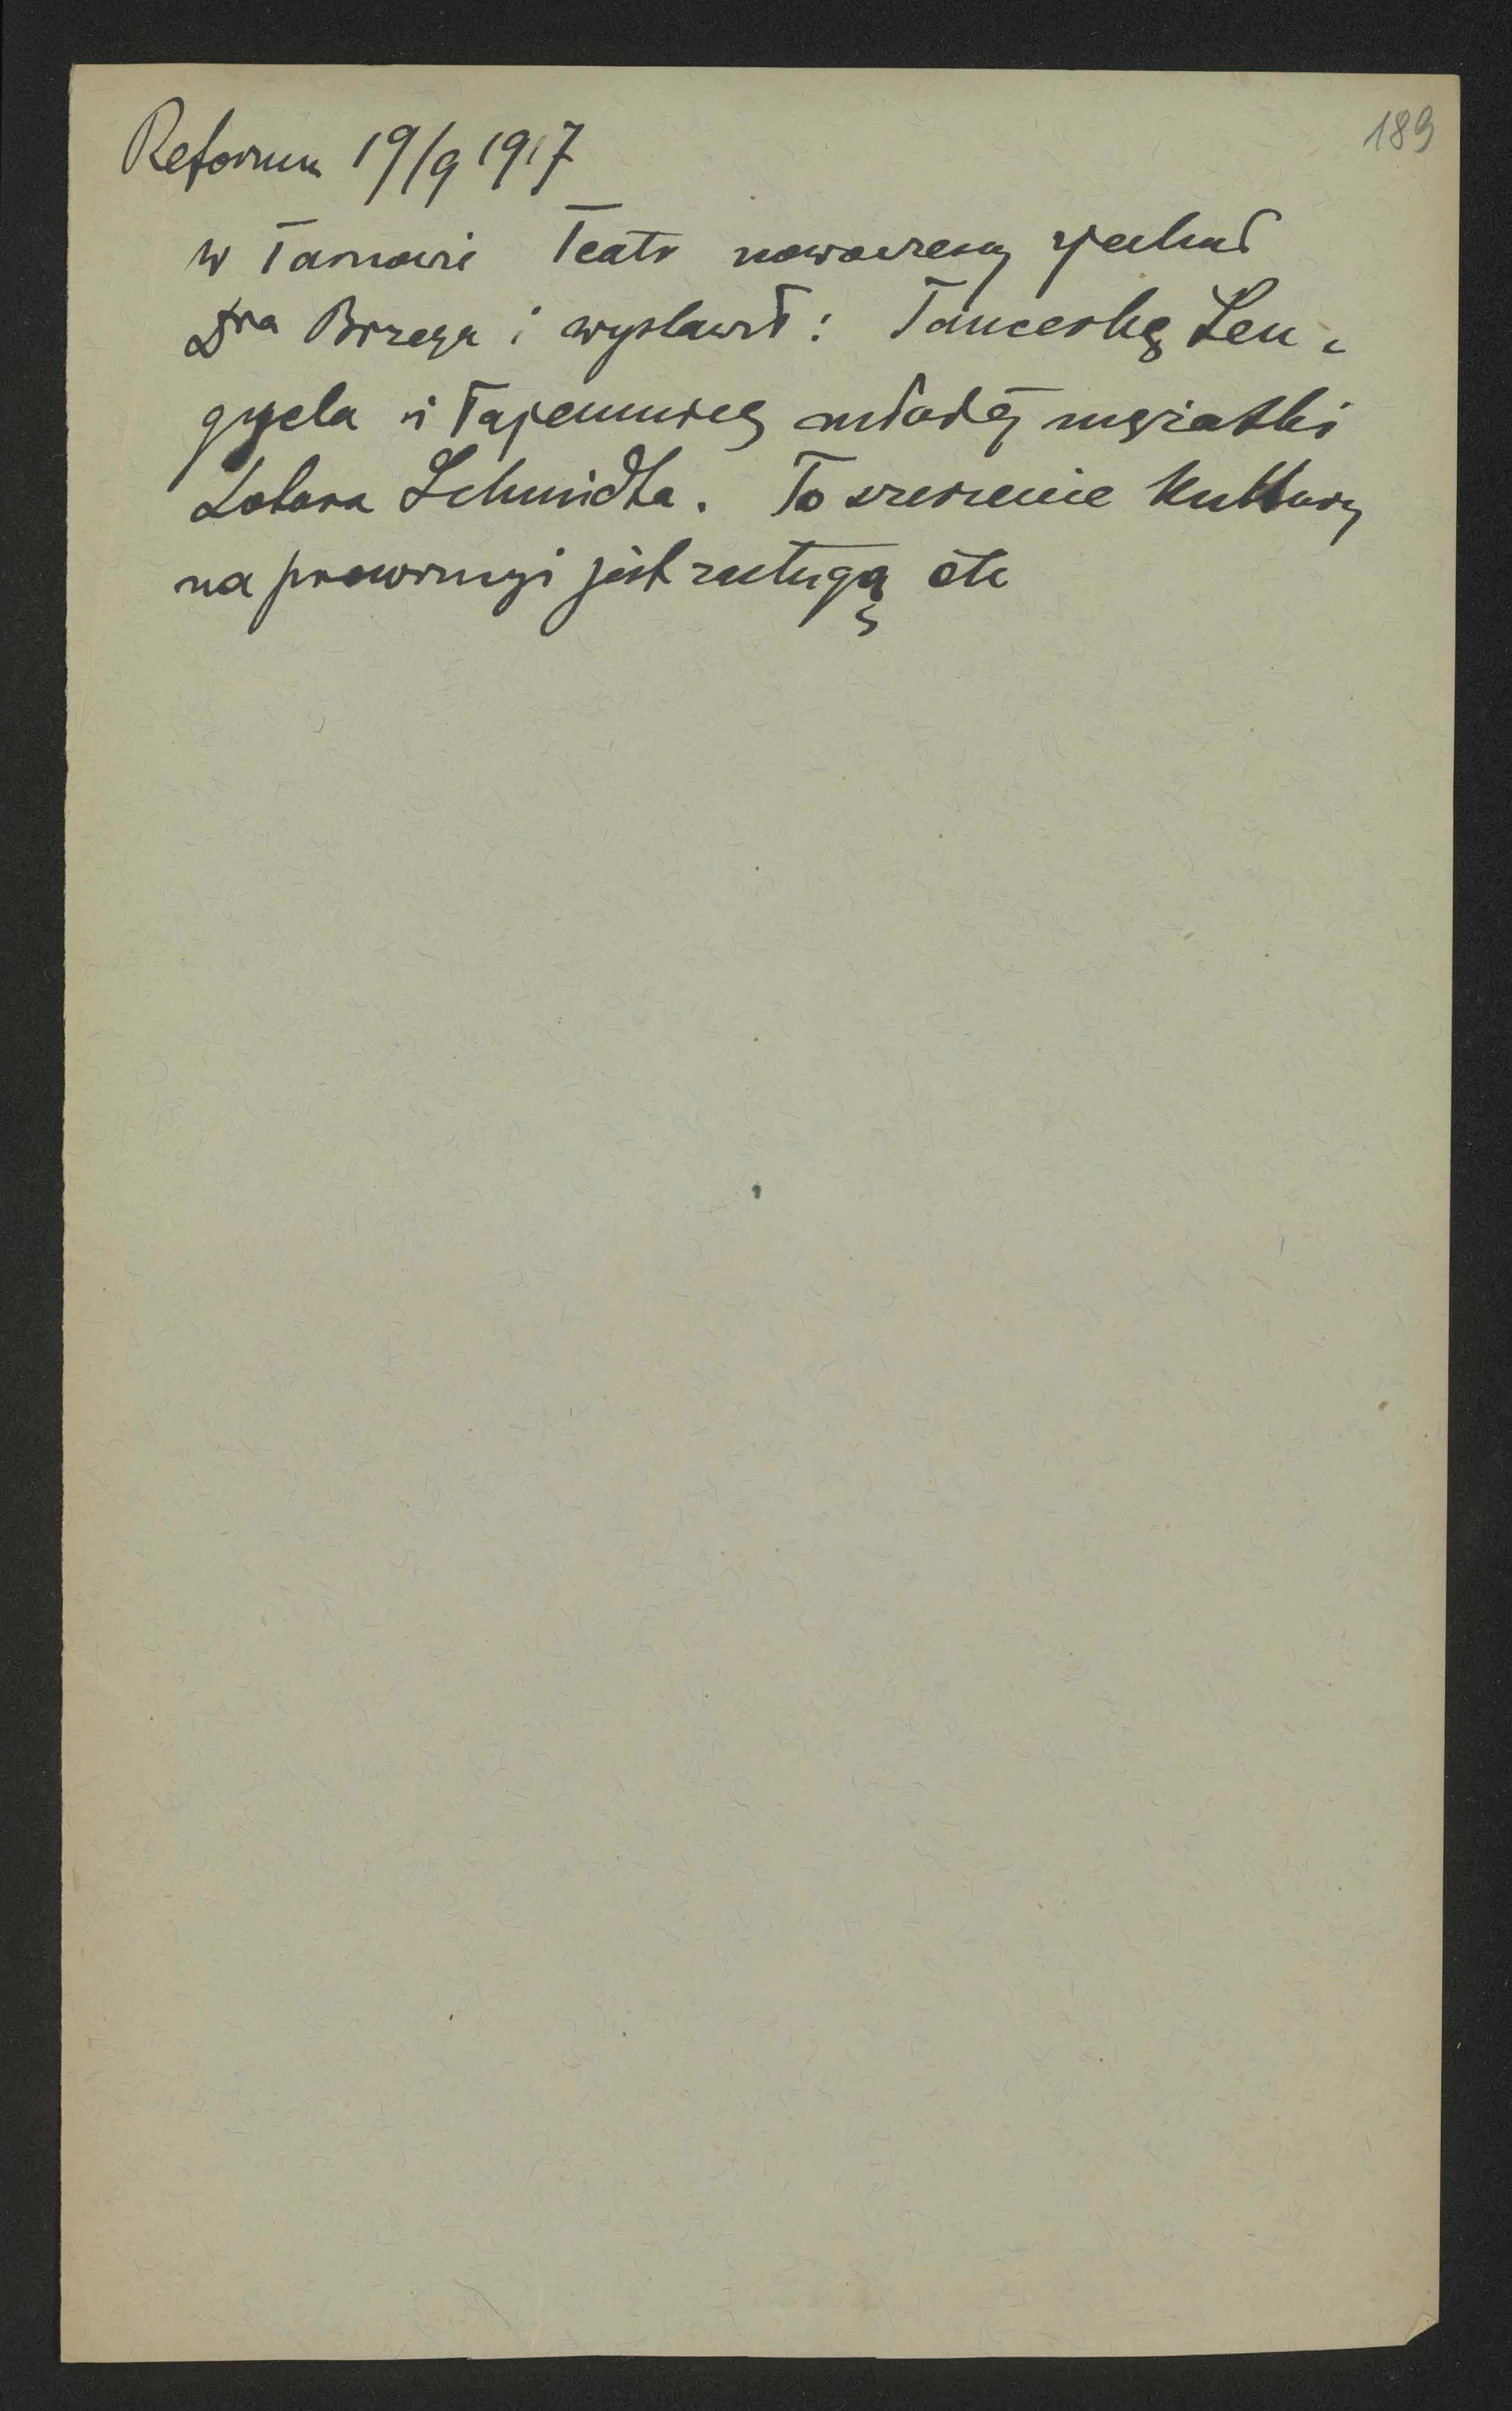 189
Reforma 19/9 1917
w Tarnowie Teatr nowoczesny zjechał
Dra Brzega i wystawił: Tancerkę Len-
gyela i Tajemnicę młodej mężatki
Lotara Schmidta. To szerzenie kultury
na prowincyi jest zasługą etc